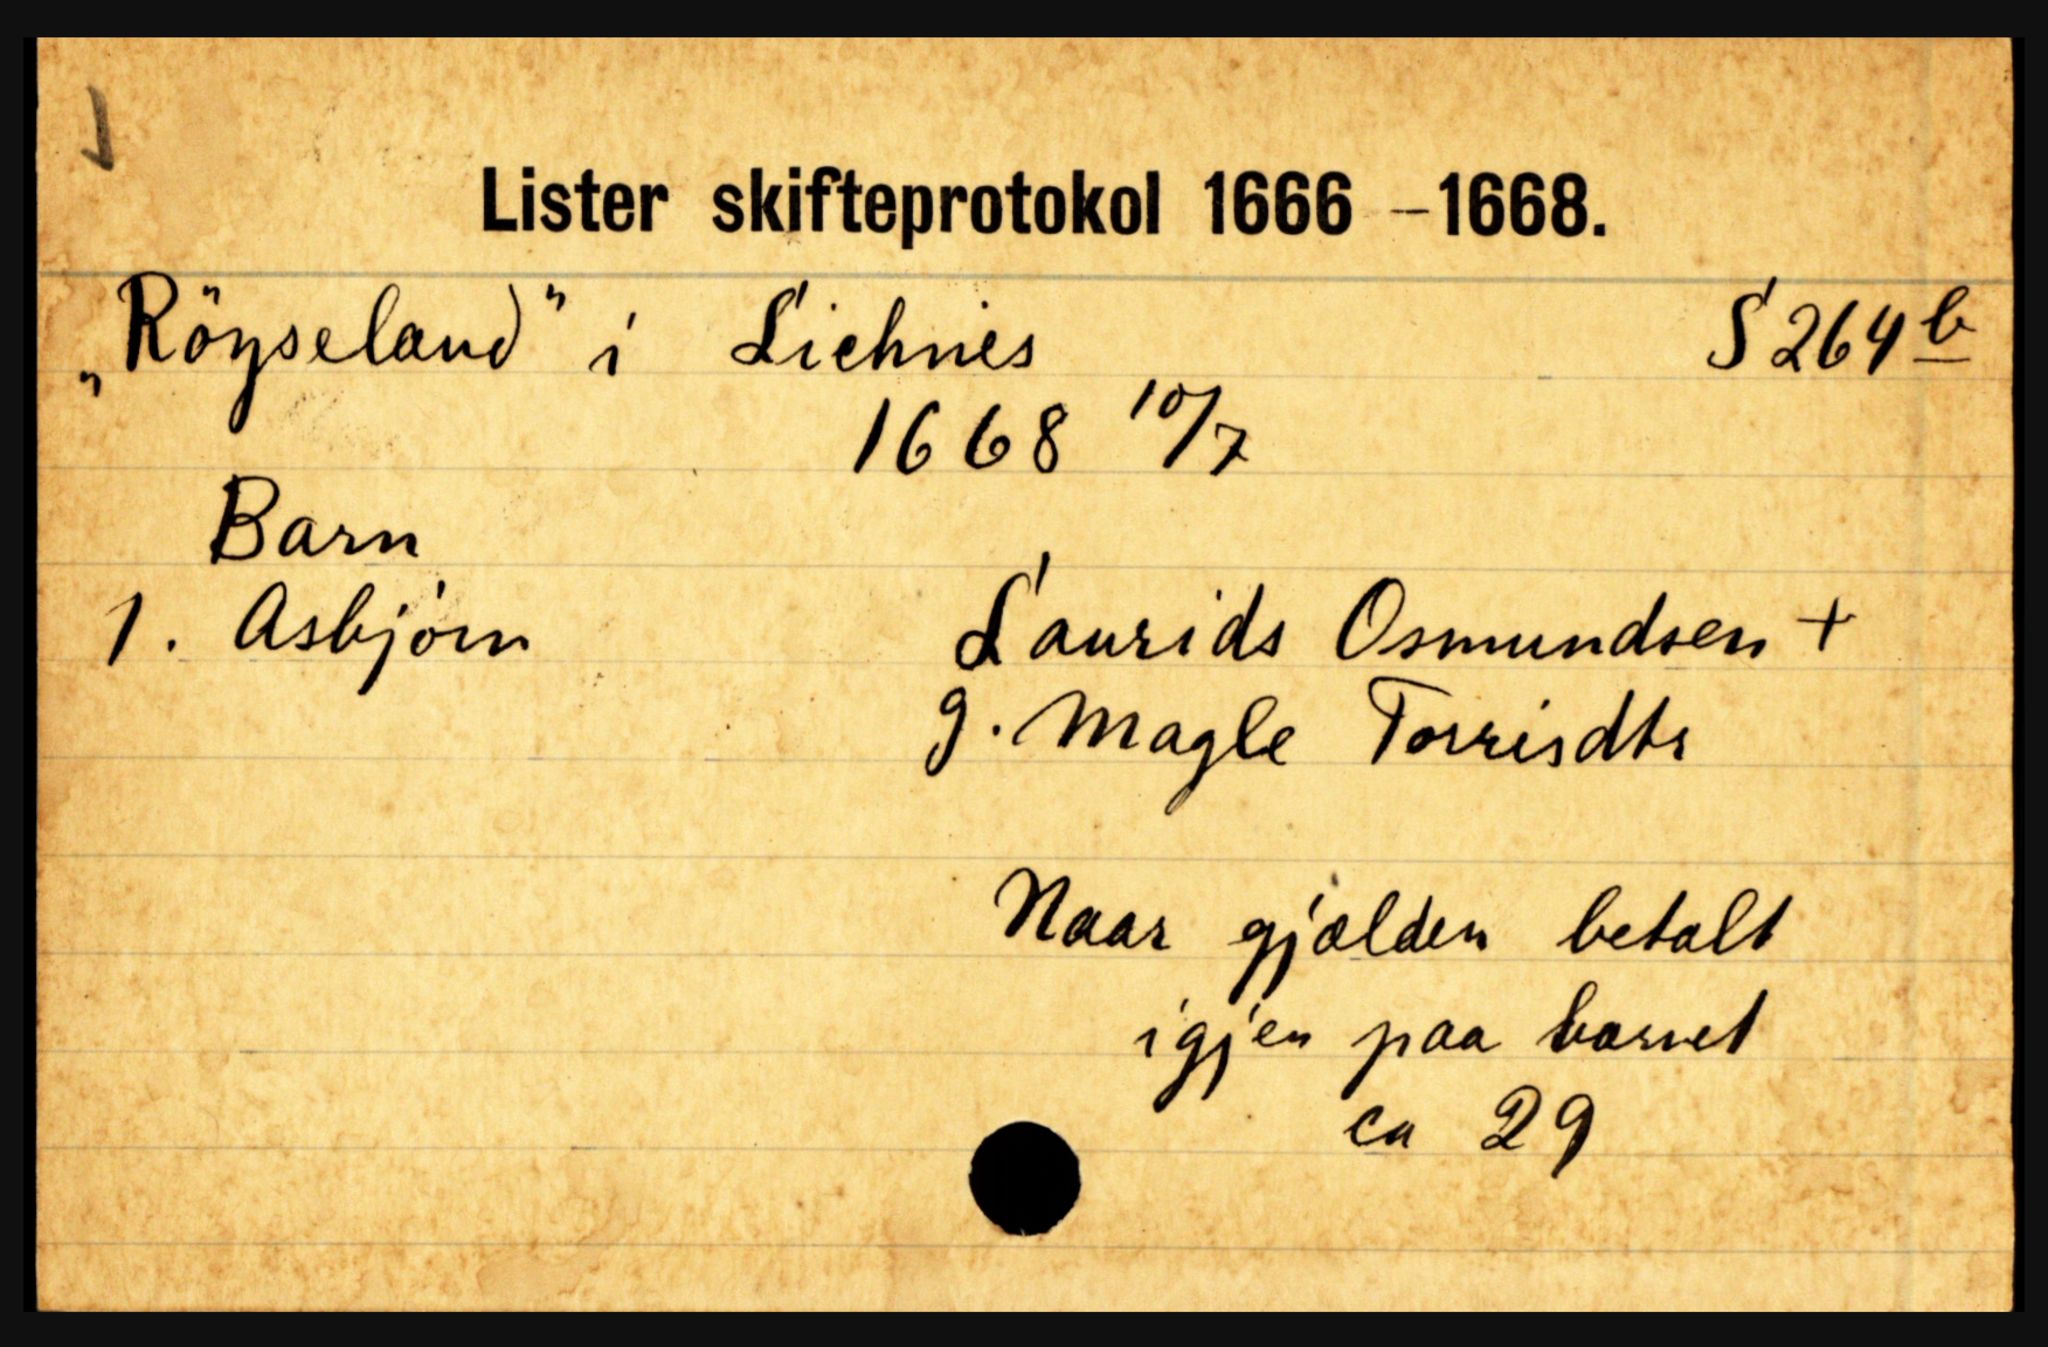 Lister skifteprotokol 1666 - 1668.
„Röyseland" i Liehnes S 264 b
1668 10/7
Barn
1. Asbjörn Laurids Osmundsen +
g. Magle Torrisdtr
Naar gjælden betalt
igjen paa barnet
ca 29